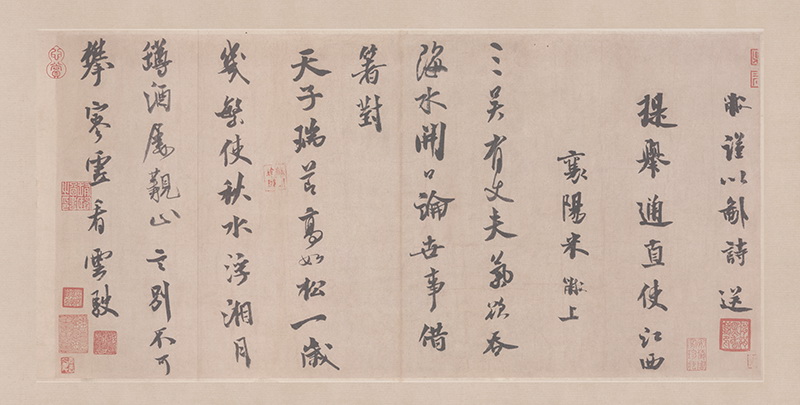 黻謹以鄙詩送
提舉通直使江西
襄陽米黻上
三吳有丈夫氣欲吞
海水開口論世事借
箸對
天子瑞節高如松一歲
幾繁使秋水浮湘月
罇酒屢覯止言別不可
攀寒虛看雲駛